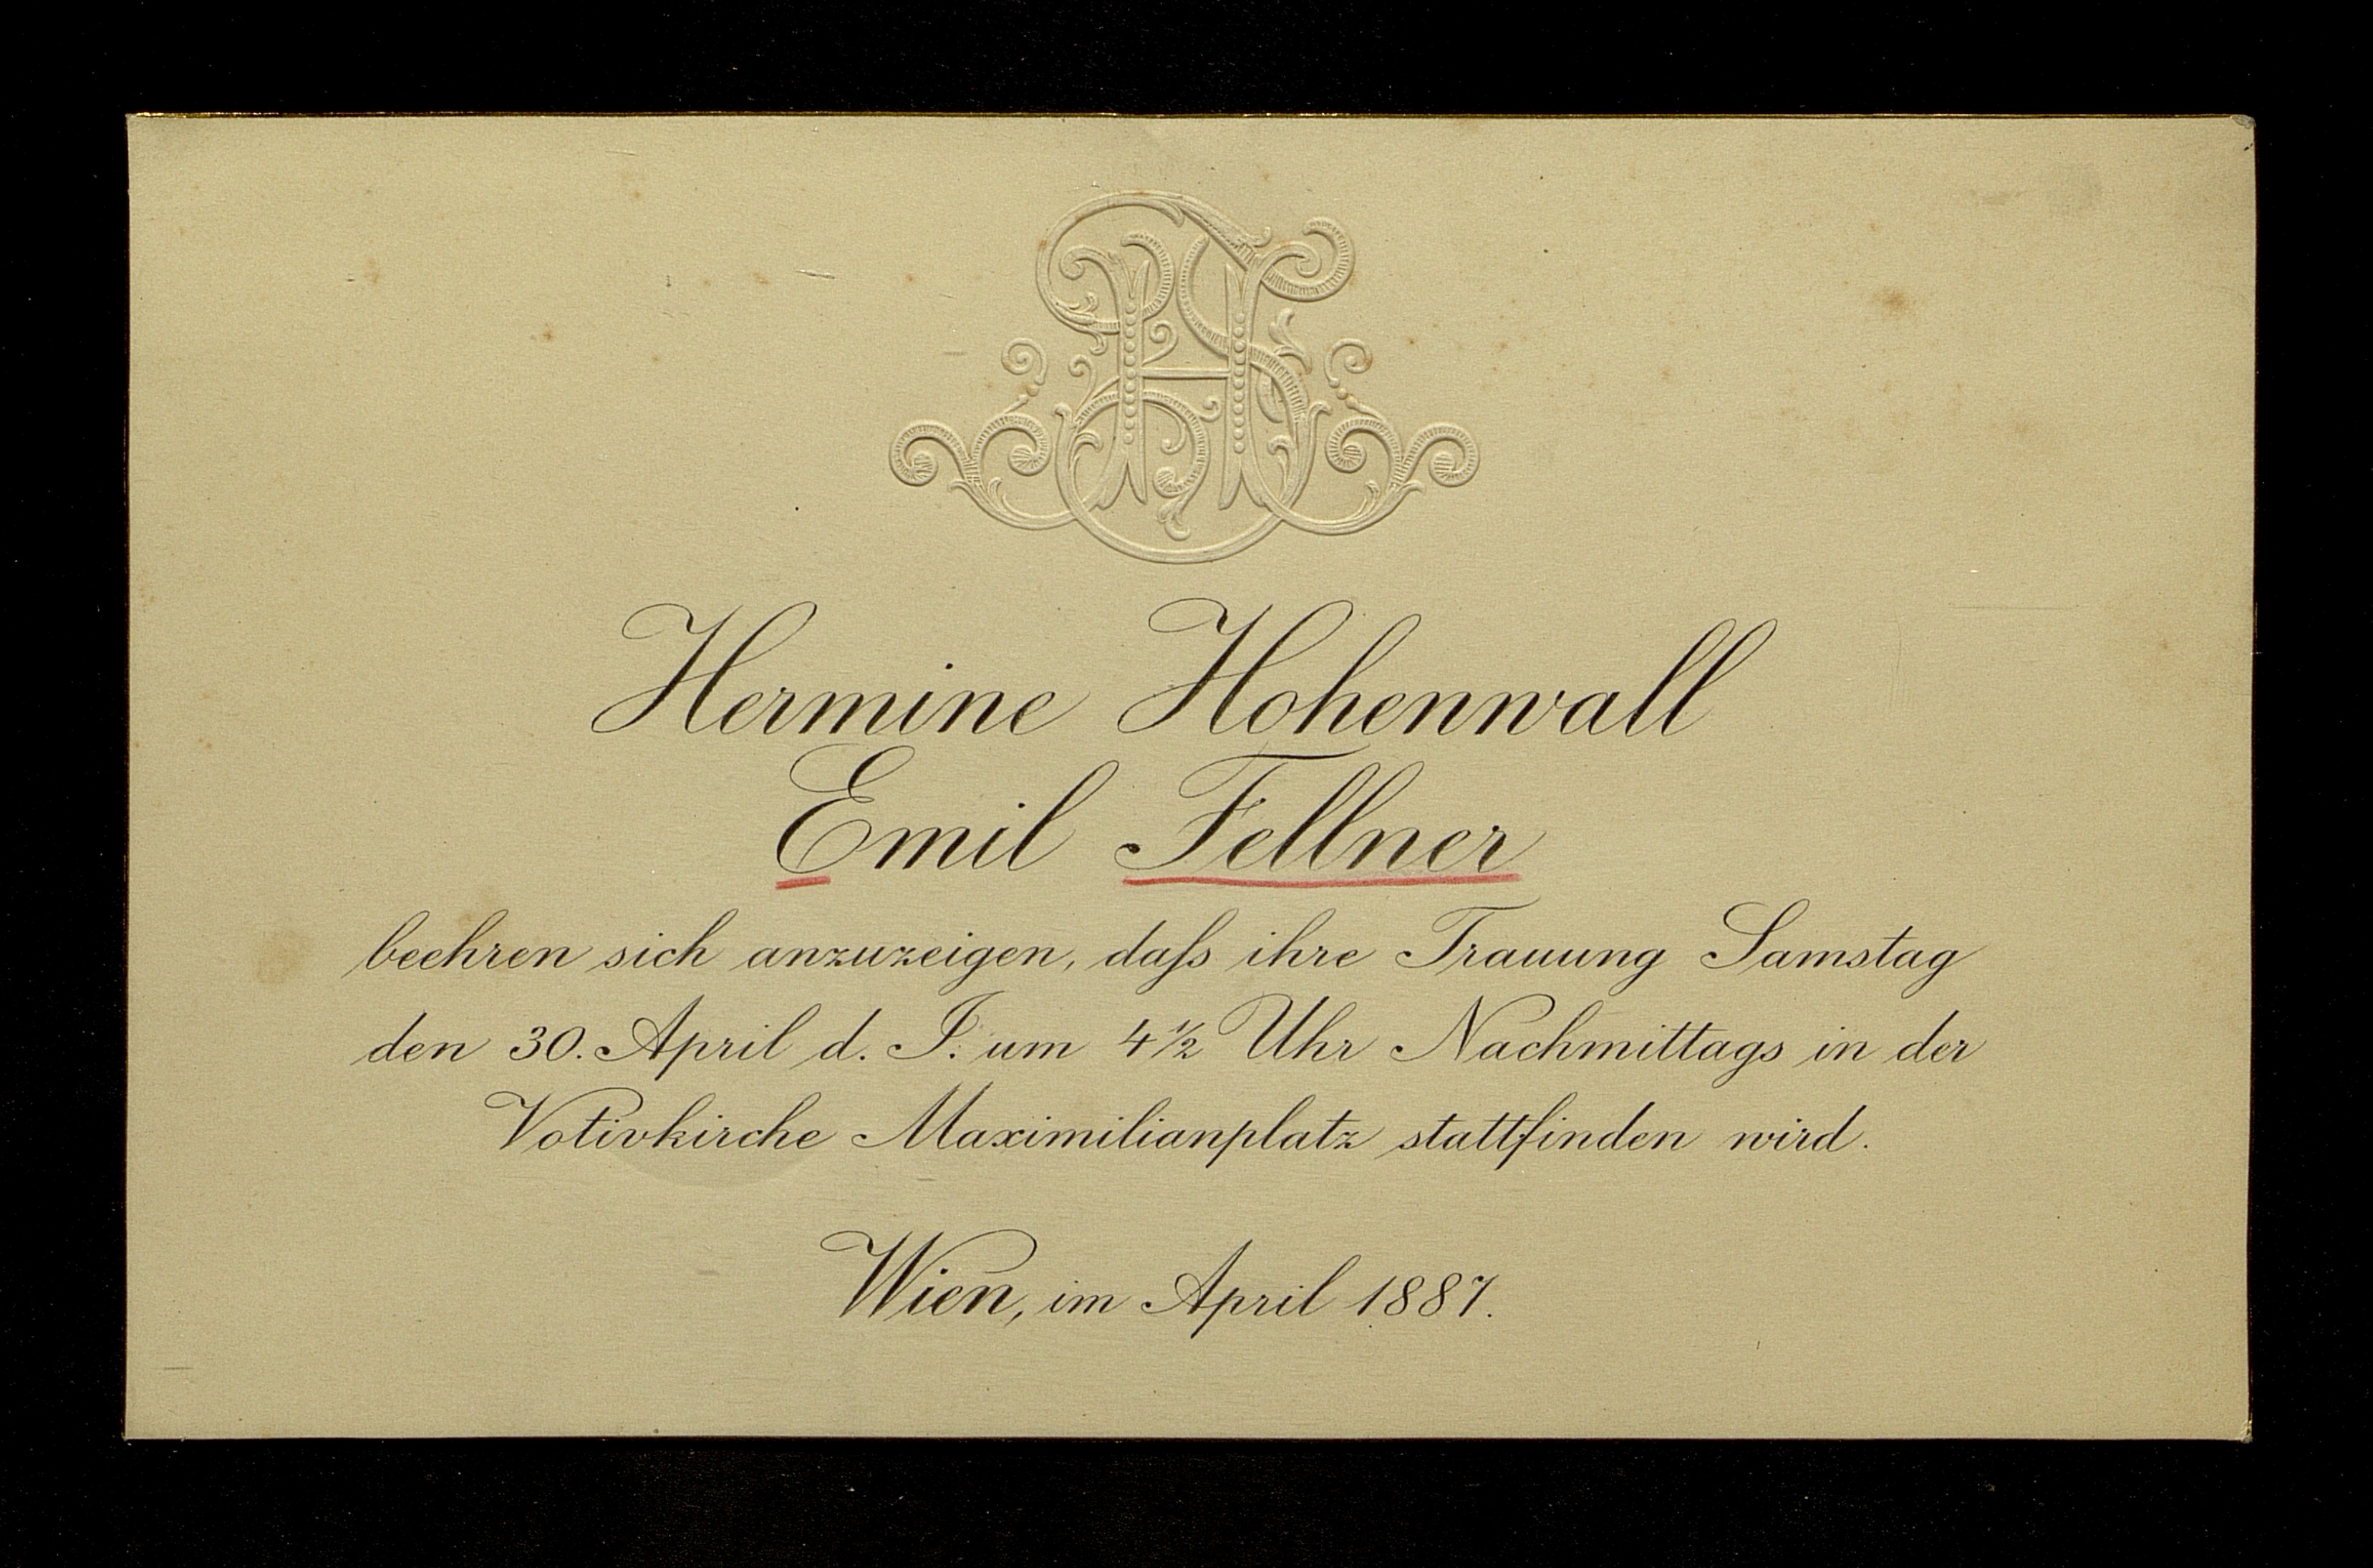 Hermine Hohenwall
Emil Fellner
beehren sich anzuzeigen, daſs ihre Trauung Samstag
den 30. April d. J. um 4½ Uhr Nachmittags in der
Votivkirche Maximilianplatz stattfinden wird.
Wien, im April 1887.